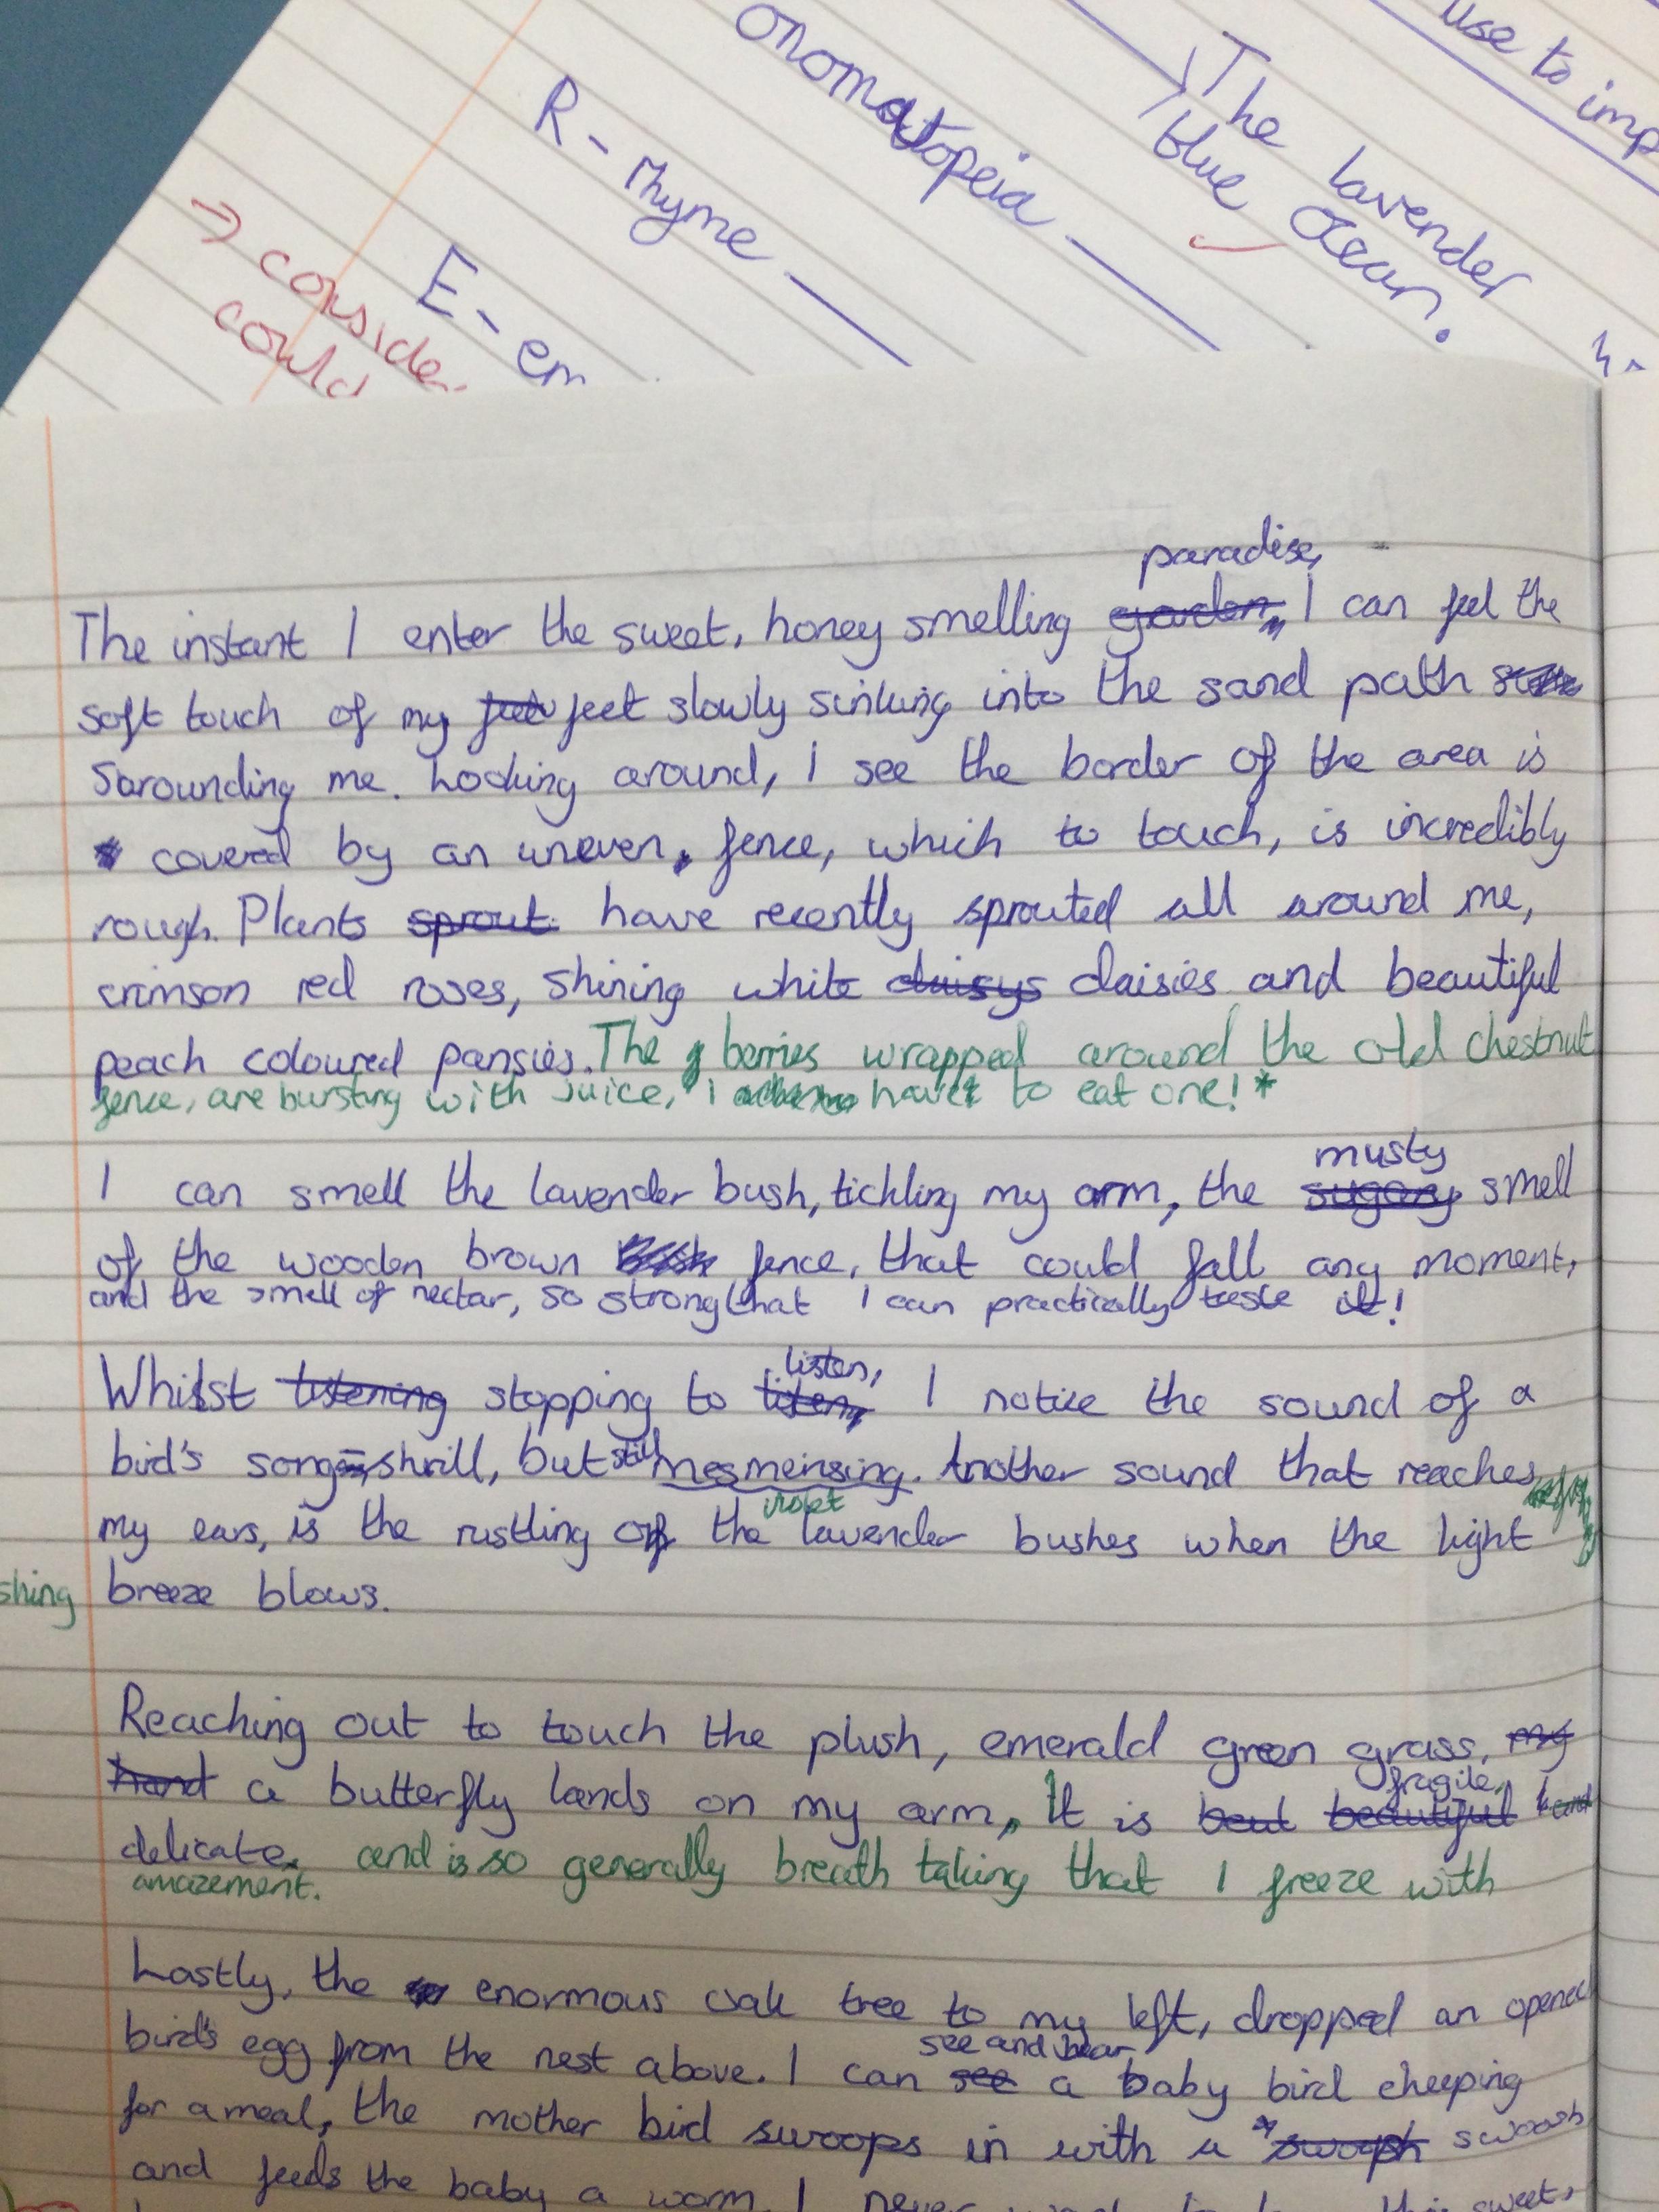 use to imp
The lavender
blue ocean.
onomatopeia
R - rhyme
E - em
→ conside
could
paradise,
The instant I enter the sweet, honey smelling garden, I can feel the
soft touch of my feet slowly sinking into the sand path
sarounding me. Looking around, I see the border of the area is
covered by an uneven, fence, which to touch, is incredibly
rough. Plants sprout have recently sprouted all around me,
crimson red roses, shining white daisys daisies and beautiful
peach coloured pansies. The berries wrapped around the old chestnut
fence, are bursting with juice, I have to eat one! *
musty
I can smell the lavender bush, tickling my arm, the sugary smell
of the wooden brown fence, that could fall any moment,
and the smell of nectar, so strong that I can practically taste it!
listen,
Whilst listening stopping to listen, I notice the sound of a
bird's song, shrill, but still mesmerising. Another sound that reaches
violet
my ears, is the rustling of the lavender bushes when the light
shing breeze blows.
Reaching out to touch the plush, emerald green grass, my
fragile,
hand a butterfly lands on my arm, It is beut beautiful and
delicate. and is so generally breath taking that I freeze with
amazement.
Lastly, the enormous oak tree to my left, dropped an opened
see and hear
bird's egg from the nest above. I can see a baby bird cheeping
for a meal, the mother bird swoops in with a * swoosh
and feeds the baby a worm. I never want to sweet,